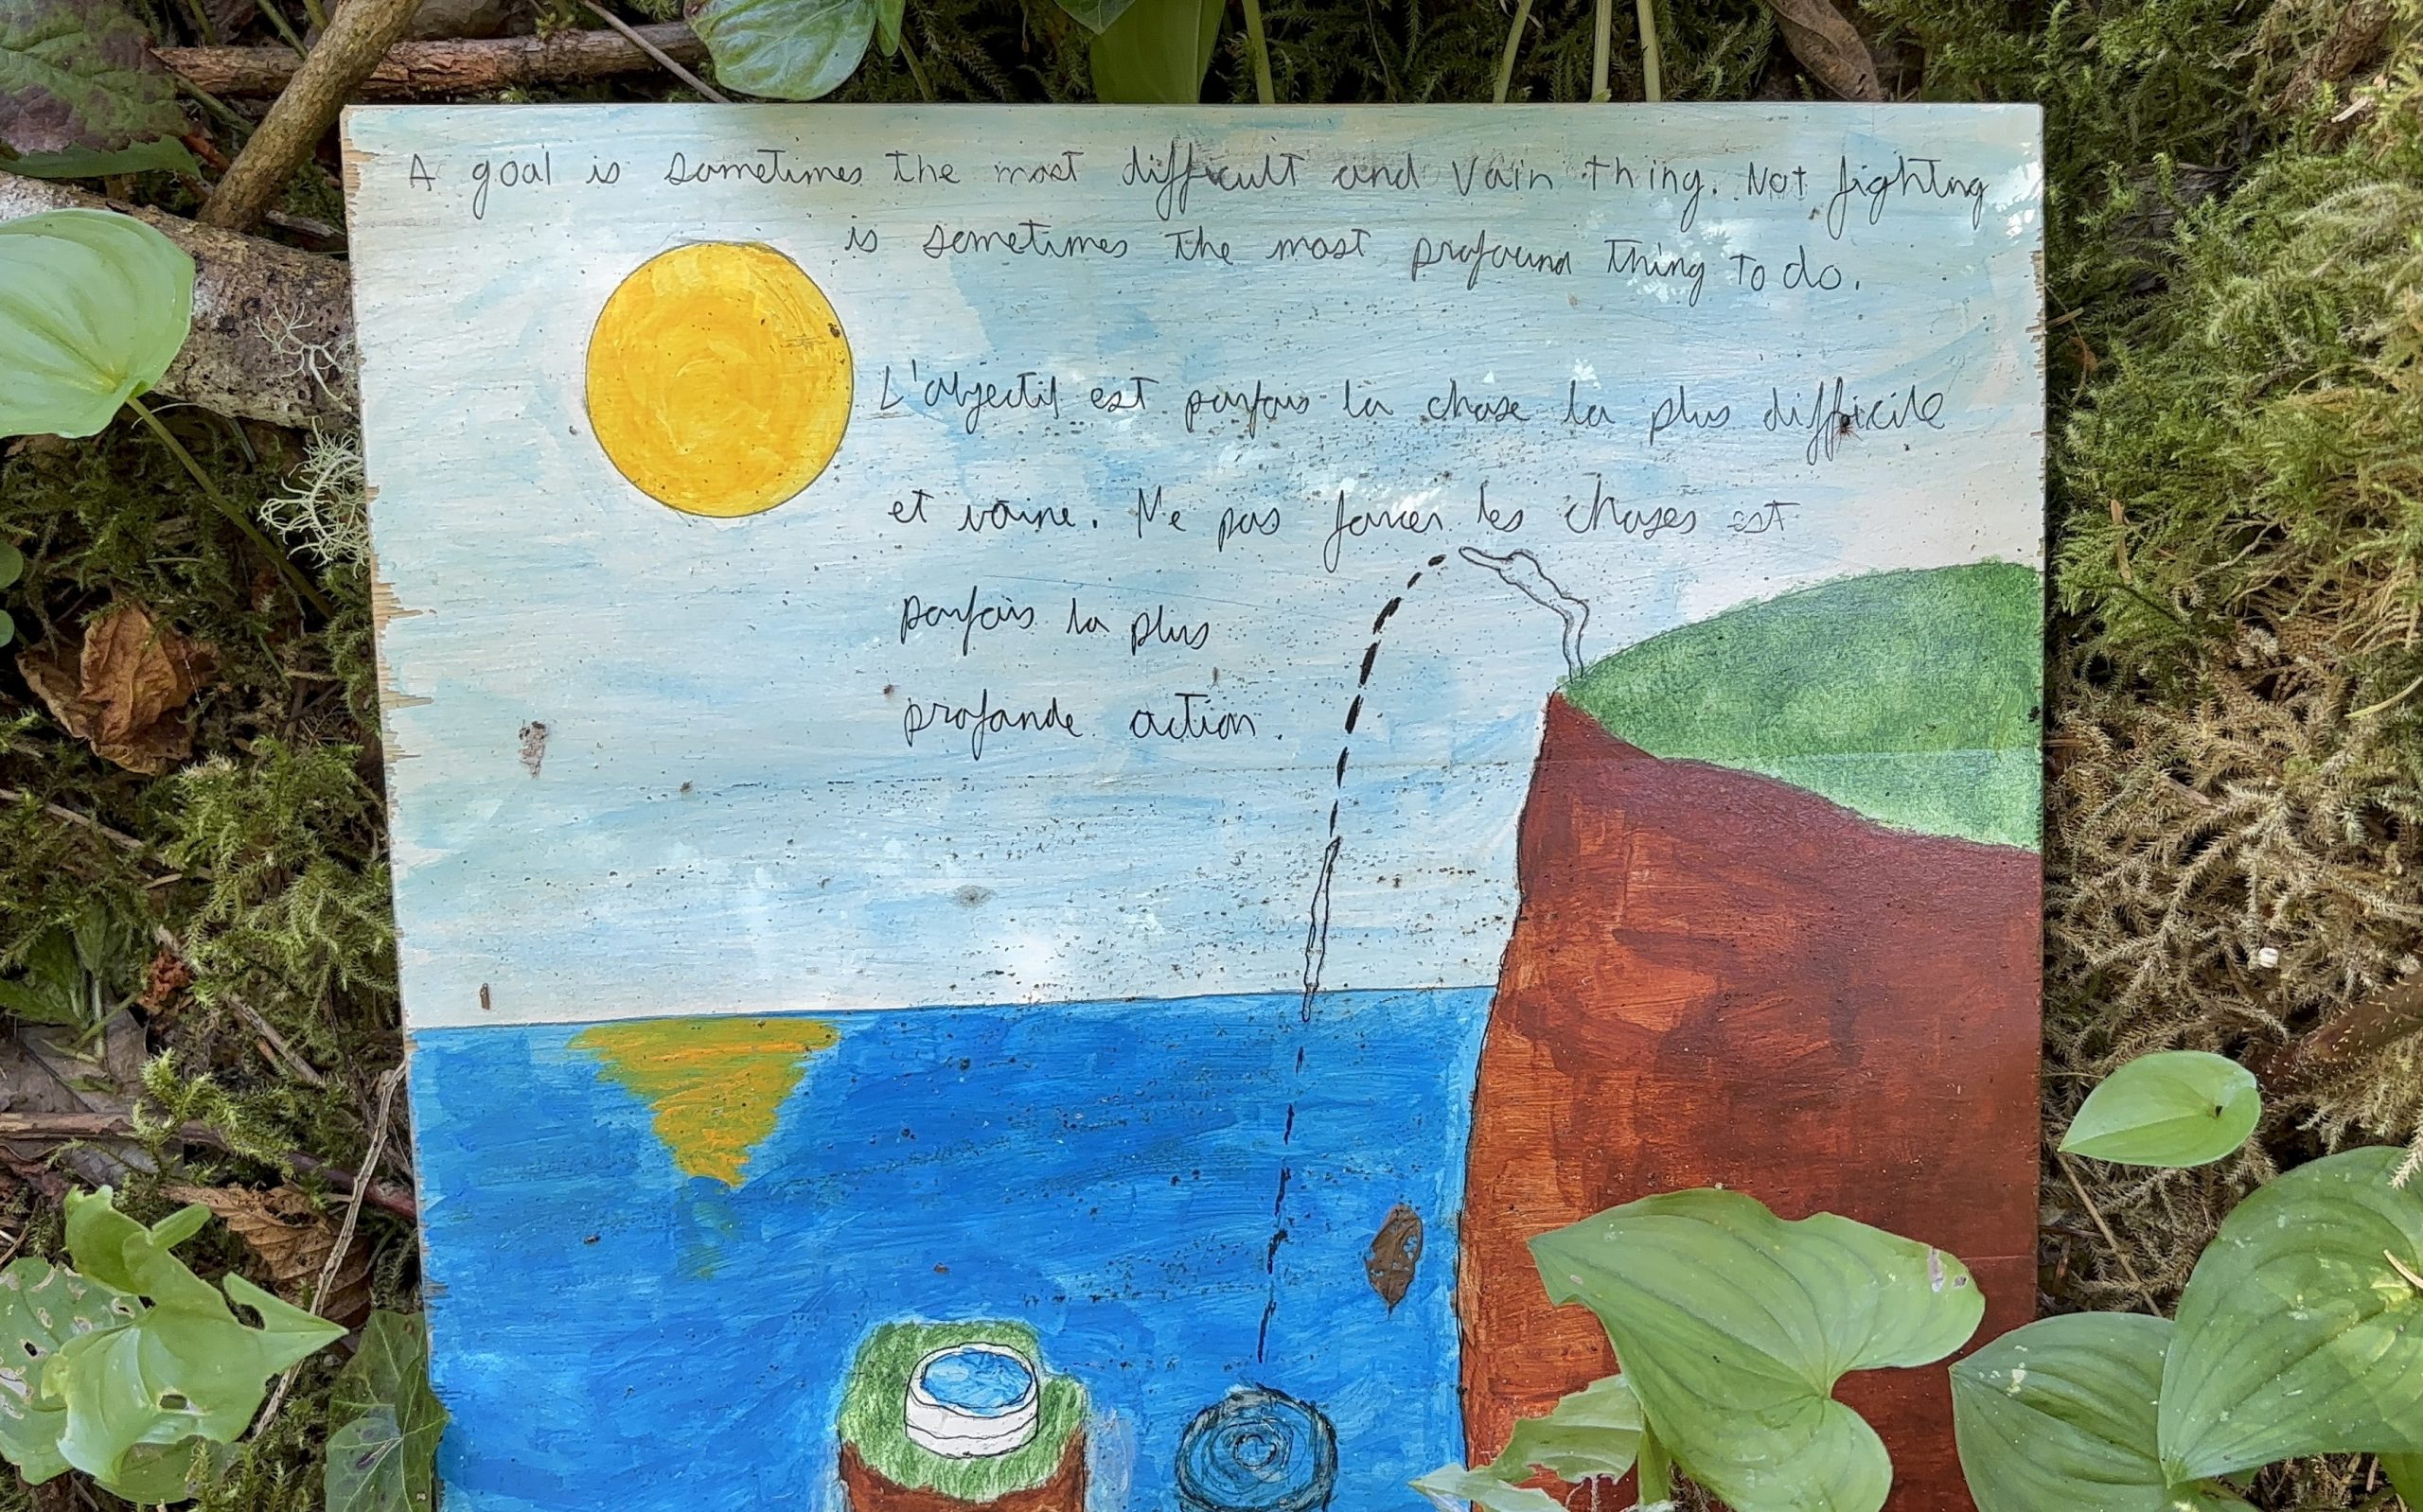 A goal is sometimes the most difficult and vain thing. Not fighting
is sometimes the most profound thing to do.
L'objectif est parfois la chose la plus difficile
et vaine. Ne pas forcer les choses est
parfois la plus
profonde action.